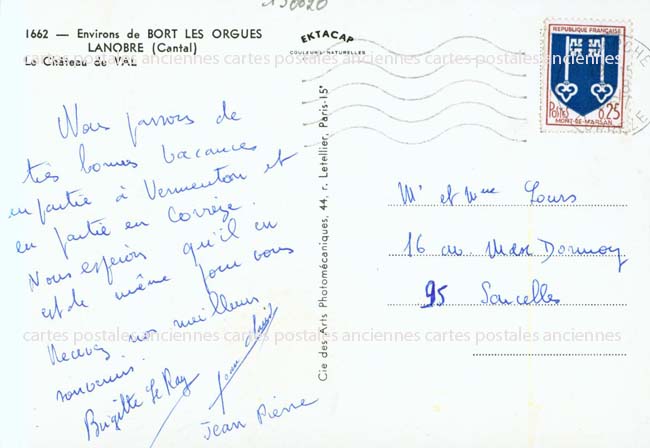 150020
1662 — Environs de BORT LES ORGUES
LANOBRE (Cantal)
Le Château de VAL
EKTACAP
COULEURS NATURELLES
REPUBLIQUE FRANÇAISE
Postes 0,25
MONT-DE-MARSAN
Nous passons de
très bonnes vacances
en partie à Vermenton et
en partie en Corrèze.
Nous espérons qu'il en
est de même pour vous
Recevez nos meilleurs
souvenirs.
Brigitte Le Ray
Jean Pierre
Cie des Arts Photomécaniques, 44, r. Letellier, Paris-15e
Mr et Mme Lours
16 av. Max Dormoy
95 Sarcelles
cartes postales anciennes cartes postales anciennes cartes postales anciennes
cartes postales anciennes cartes postales anciennes cartes postales anciennes